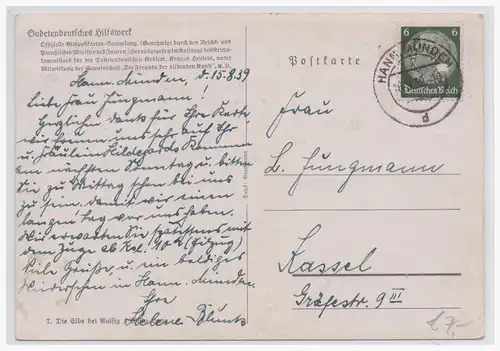 Sudetendeutsches Hilfswerk
Offizielle Bildpostkarten-Sammlung. (Genehmigt durch den Reichs- und
Preußischen Minister des Innern.) Herausgegeben im Auftrage des Reichs-
kommissars für die Sudetendeutschen Gebiete, Konrad Henlein, unter
Mitwirkung der Gemeinschaft "Die Freunde der bildenden Kunst", e.V.
Hann. Münden, d. 15.8.39
Liebe Frau Jungmann!
Herzlich Dank für Ihre Karte
wir freuen uns sehr auf Ihr
u. Fräulein Hildegards Kommen
am nächsten Sonntag u. bitten
Sie zu Mittag schon bei uns
zu sein, damit wir einen
langen Tag vor uns haben.
Wir erwarten Sie spätestens mit
dem Zuge ab Kassel (Eilzug)
Viele Grüße, u. ein baldiges
Wiedersehen in Hann. Münden.
Ihre
Helene
7. Die Elbe bei Aussig
Postkarte
6 6
Deutsches Reich
HANN. MÜNDEN
d
Frau
L. Jungmann
Kassel
Gräfestr. 9 III